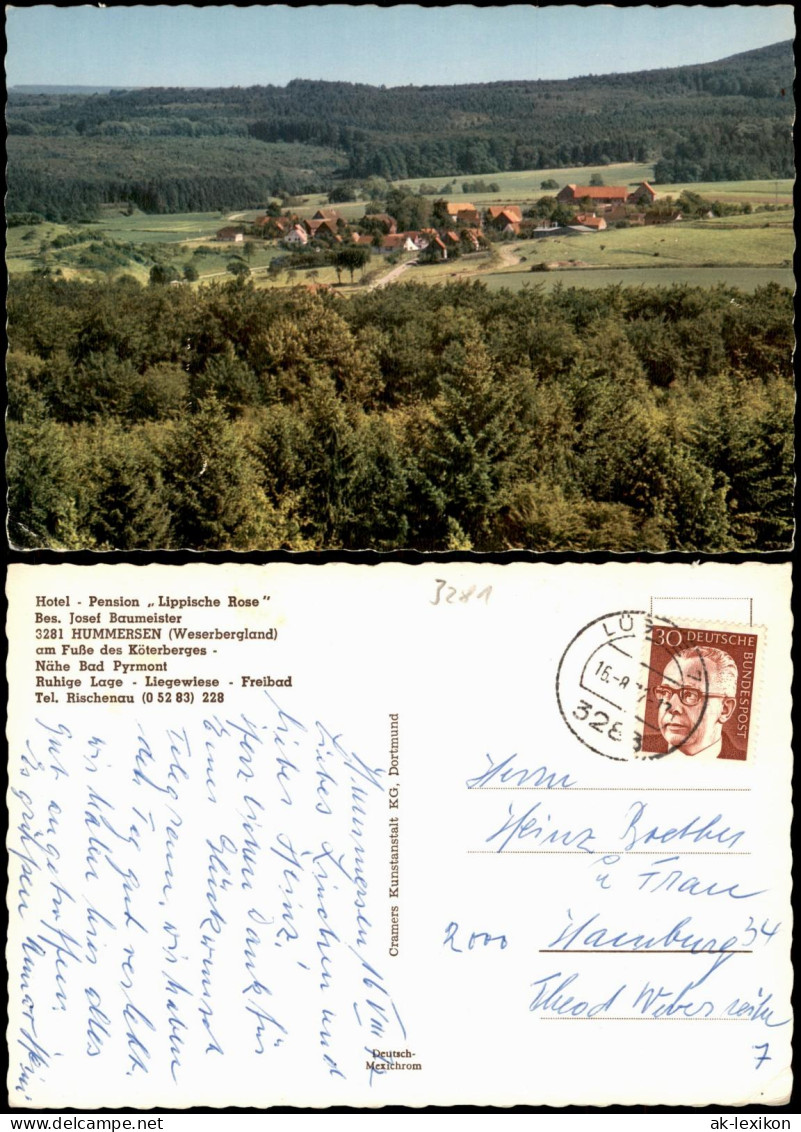 Hotel - Pension „Lippische Rose"
Bes. Josef Baumeister
3281 HUMMERSEN (Weserbergland)
am Fuße des Köterberges -
Nähe Bad Pyrmont
Ruhige Lage - Liegewiese - Freibad
Tel. Rischenau (0 52 83) 228
3281
LÜ
16.-8.
3283
30 DEUTSCHE
BUNDESPOST
Hummersen 16 VIII 72
Liebes Linchen und
lieber Heinz!
Herzlichen Dank für
Eurer Glückwunsch
Telegramm, wir haben
den Tag gut verlebt.
wir haben hier alles
gut angetroffen.
Es grüßen
Cramers Kunstanstalt KG, Dortmund
Deutsch-
Mexichrom
Herrn
Heinz Boether
u Frau
2000 Hamburg 34
Theod Weber
7
ak-lexikon